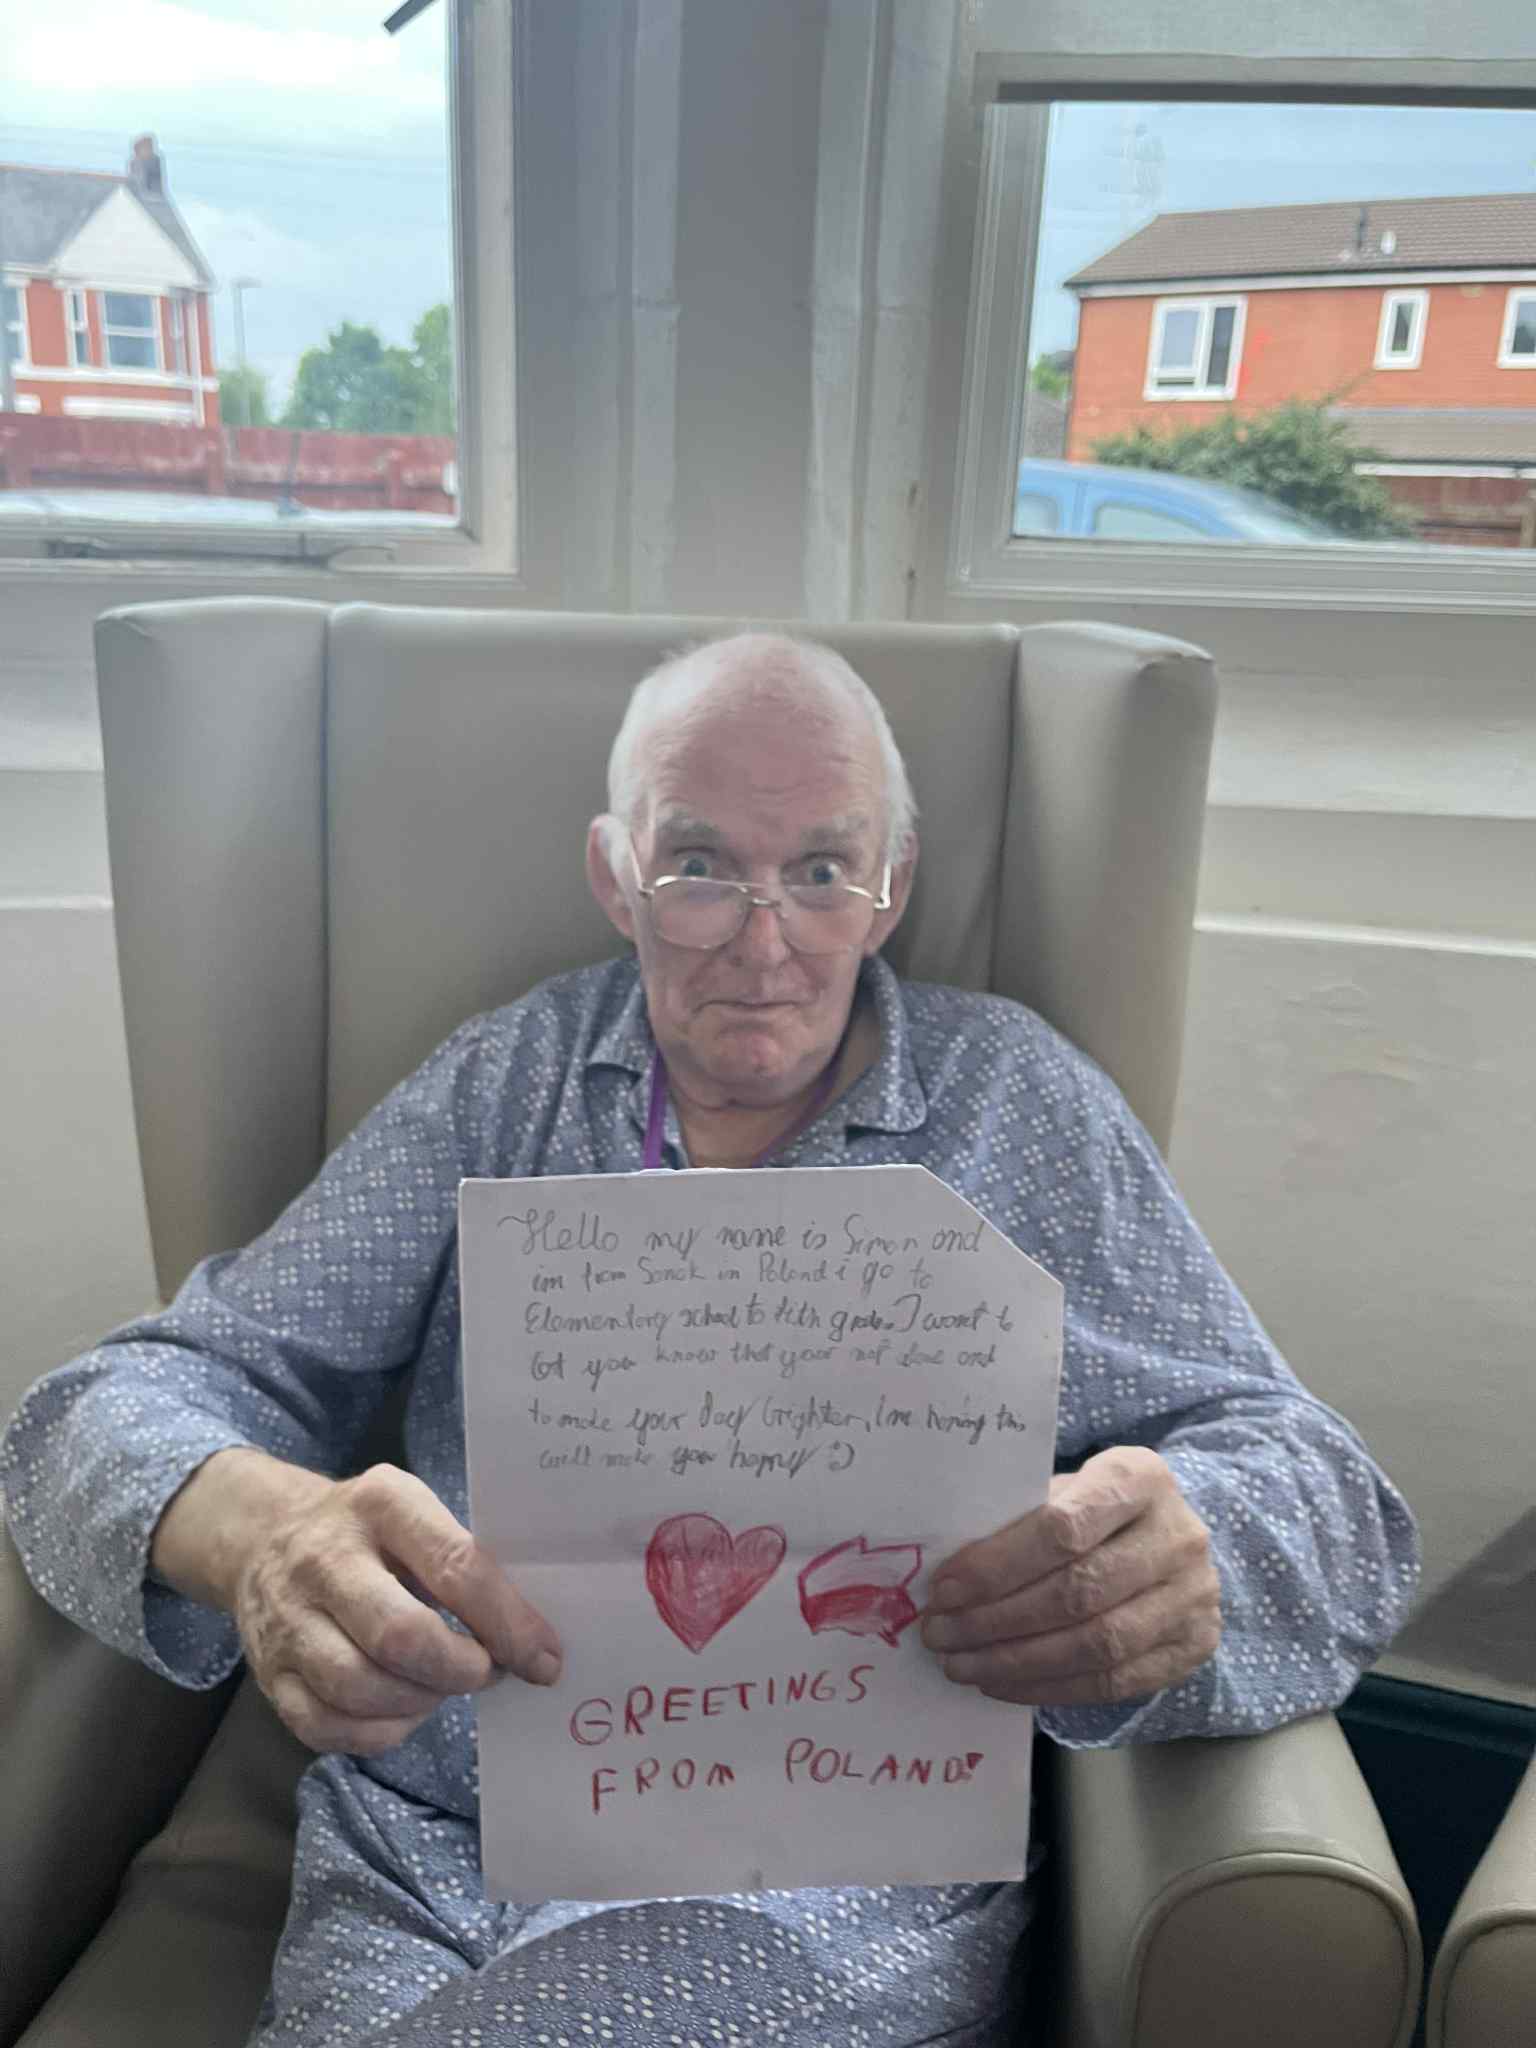 Hello my name is Simon and
im from Sanok in Poland i go to
Elementary school to fith grade. I want to
let you know that your not alone and
to make your day brighter, Im hoping this
will make you happy :)
GREETINGS
FROM POLAND!